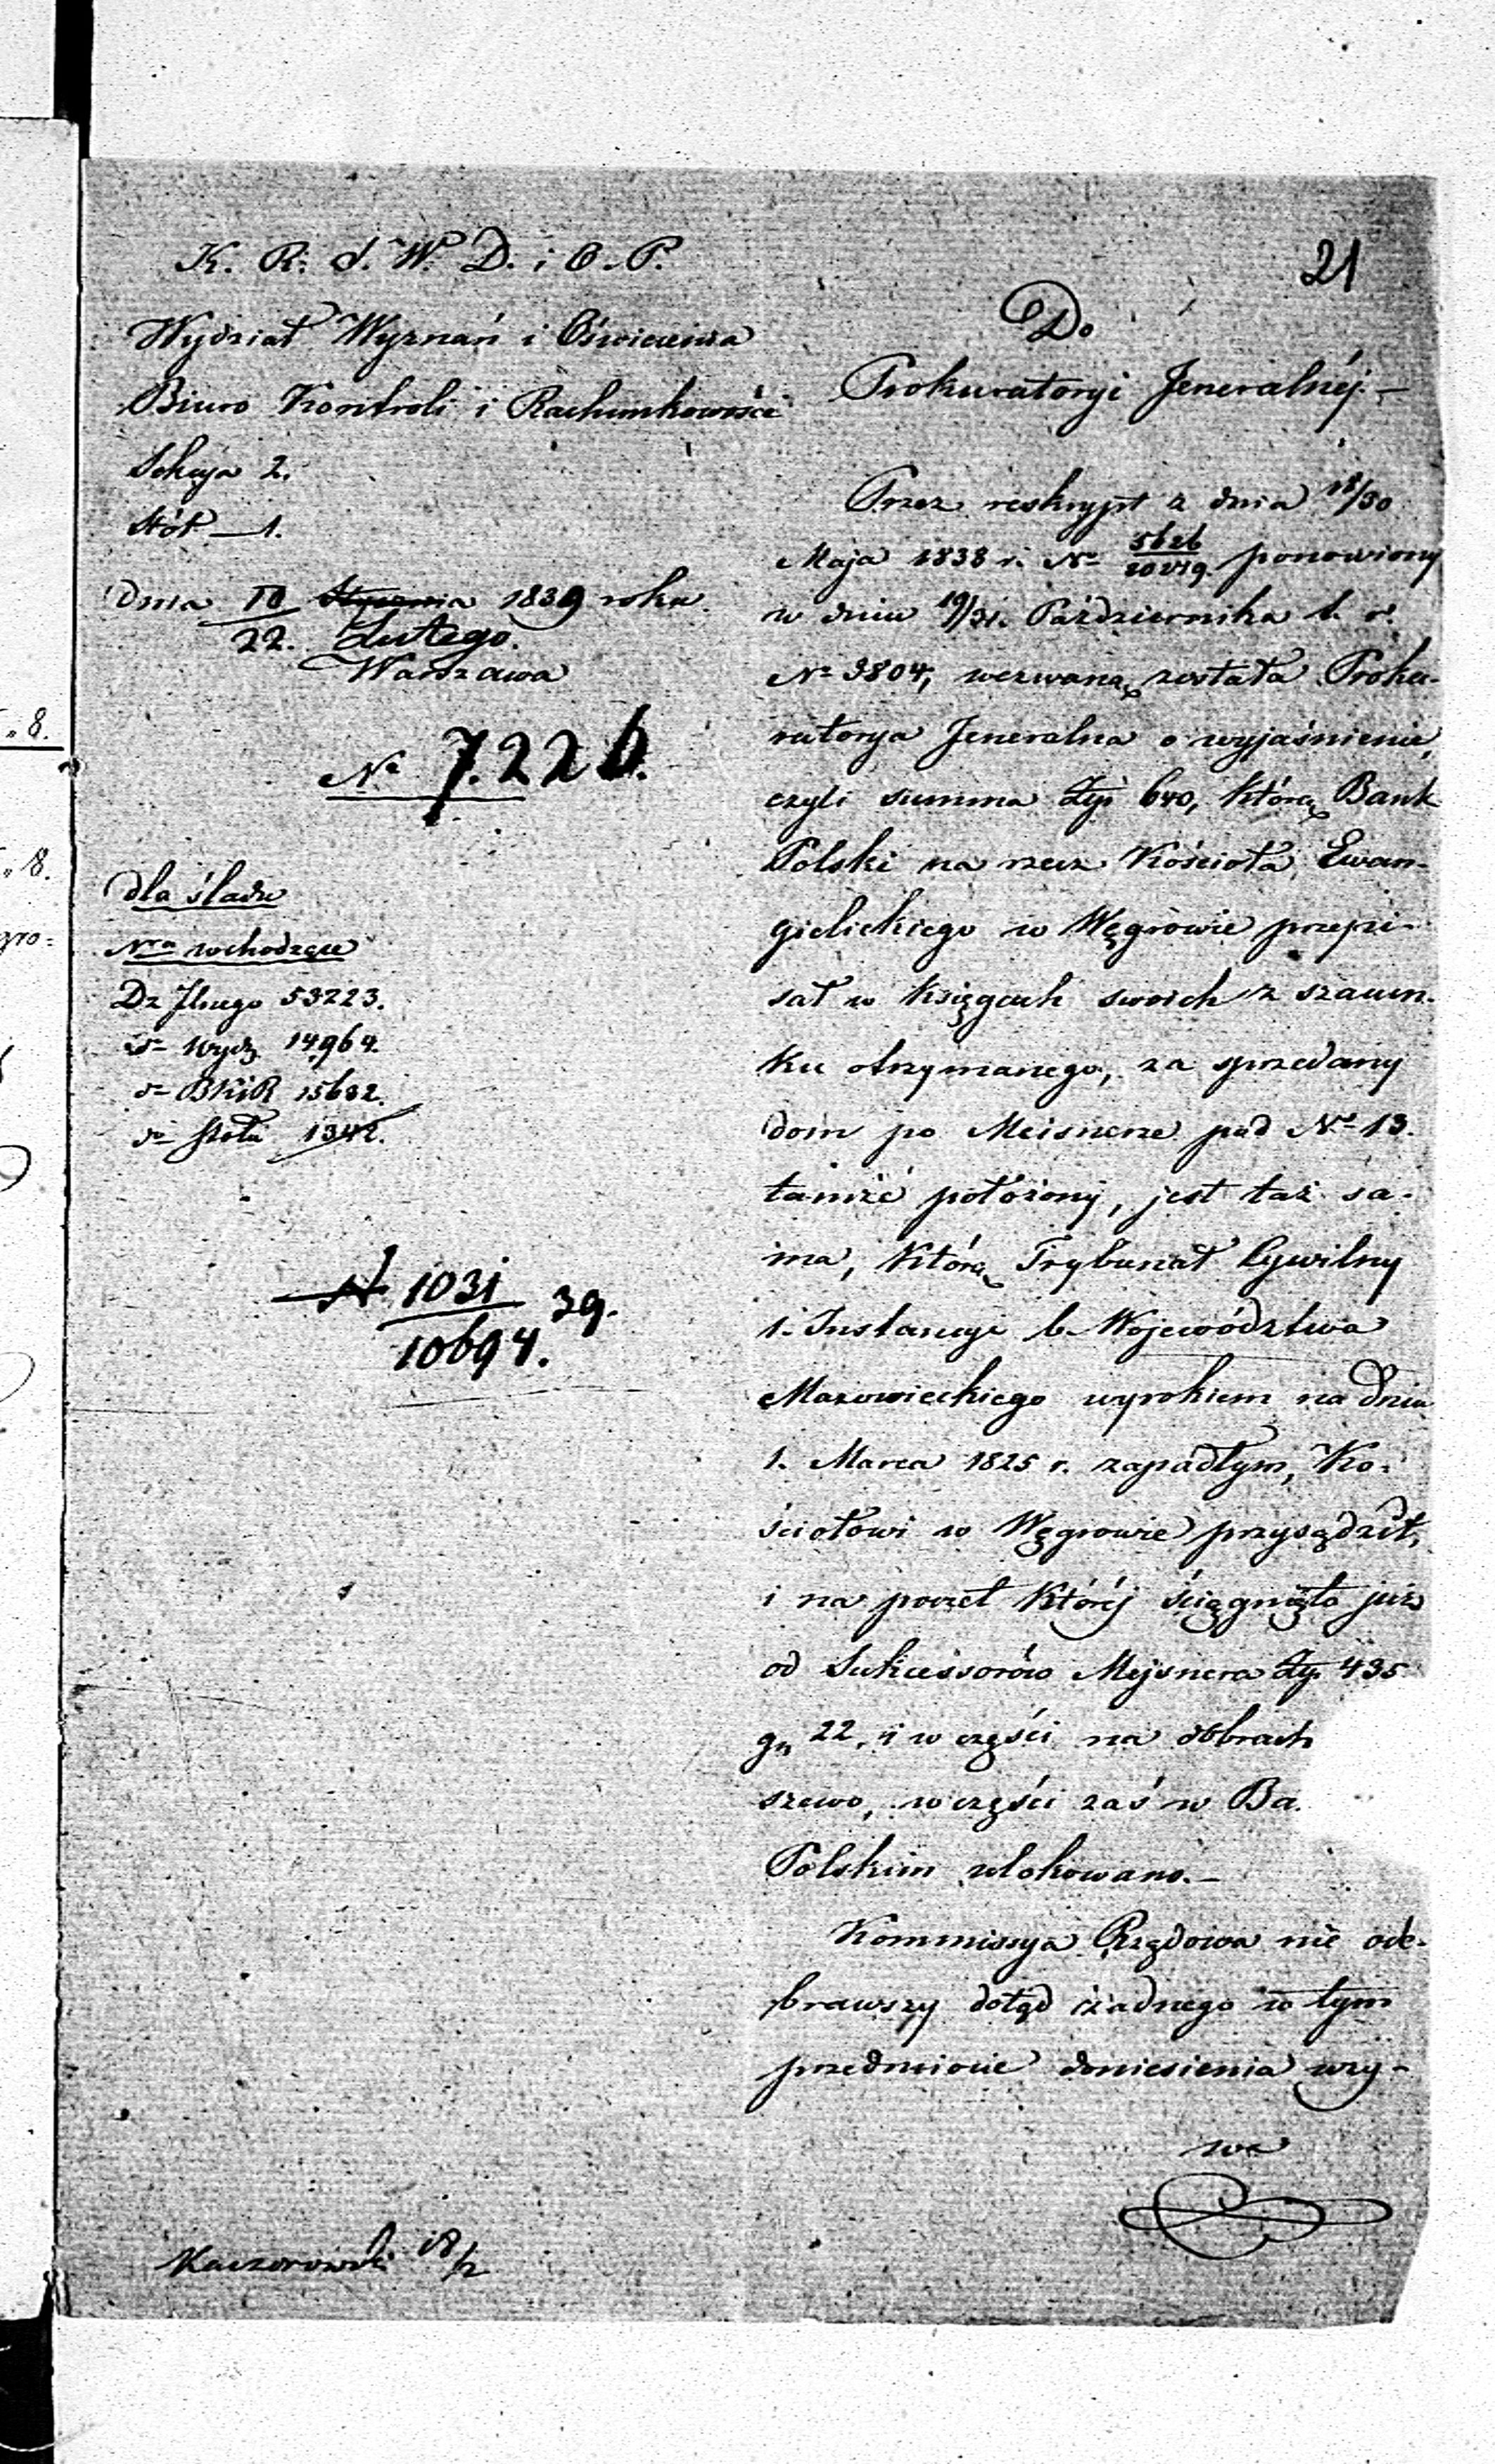 21
K. R. S. W. D. i O. P.
Wydział Wyznań i Oświecenia
Biuro Kontroli i Rachunkowości
Sekcja 2.
Stół — 1.
Dnia 10/22. Stycznia Lutego. 1839 roku.
Warszawa
No 7.226.
dla śladu
Nra wchodzące
Dz Jlnego 53223.
do Wydz 14964.
do BKiR 15632.
do Stołu 1342.
N 1031/10694. 39.
Kaczorowski 18/2
Do
Prokuratoryi Jeneralnéj.—
Przez reskrypt z dnia 18/30
Maja 1838 r. No ponowiony
w dniu 19/31. Października t. r.
No 3804, wezwaną została Proku-
ratorya Jeneralna o wyjaśnienie,
czyli summa Złp 640, którą Bank
Polski na rzecz Kościoła Ewan-
gielickiego w Węgrowie przepi-
sał w księgach swoich z szacun-
ku otrzymanego, za sprzedany
dom po Meisnerze pod No 13.
tamże położony, jest taż sa-
ma, którą Trybunał Cywilny
1. Instancyi b. Województwa
Mazowieckiego wyrokiem na dniu
1. Marca 1825 r. zapadłym, Ko-
ściołowi w Węgrowie przysądził,
i na poczet któréj ściągnięto już
od Sukcessorów Mejsnera Złp. 435
gr 22, i w części na dobrach
szewo, w części zaś w Ba
Polskim ulokowano.—
Kommissya Rządowa nie ode-
brawszy dotąd żadnego w tym
przedmiocie doniesienia wzy-
wa